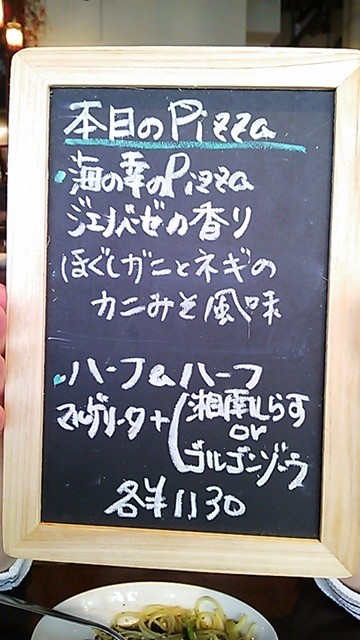 本日のPizza
・海の幸のPizza
ジェノベーゼの香り
ほぐしガニとネギの
カニみそ風味
・ハーフ&ハーフ
マルゲリータ+(湘南しらす
or
ゴルゴンゾーラ
各¥1130